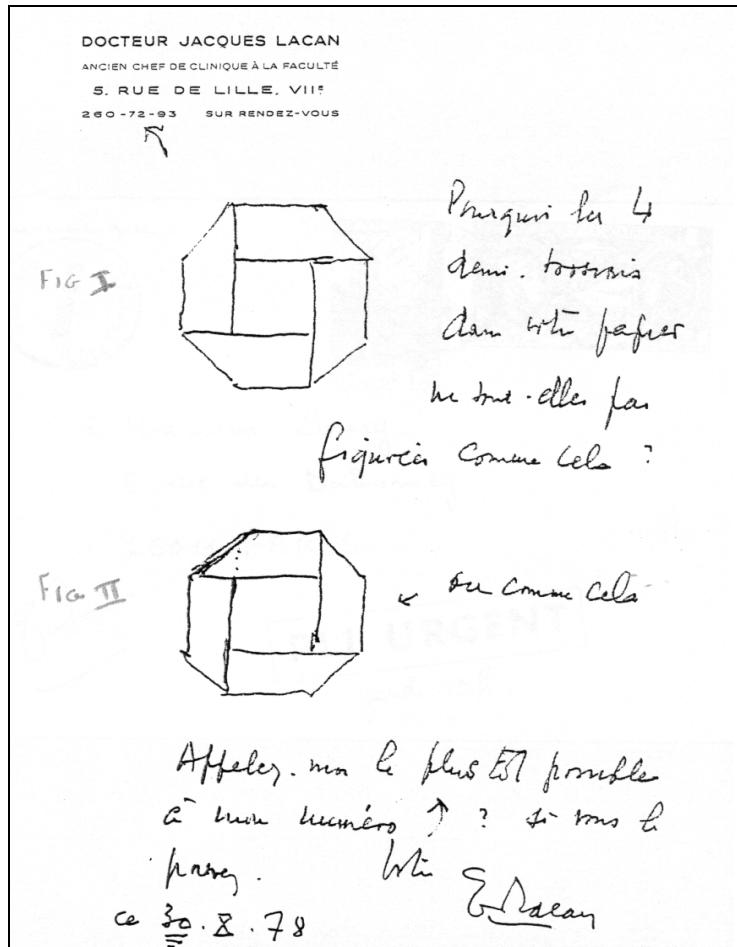 DOCTEUR JACQUES LACAN
ANCIEN CHEF DE CLINIQUE À LA FACULTÉ
5, RUE DE LILLE, VIIᵉ
260-72-93 SUR RENDEZ-VOUS
Pourquoi les 4
FIG I
demi-torsions
dans votre papier
ne sont-elles pas
figurées comme cela ?
FIG II
ou comme cela
URGENT
Appelez-moi le plus tôt possible
à mon numéro ↑ ? si vous le
pouvez. Votre
J. Lacan
ce 30.X.78